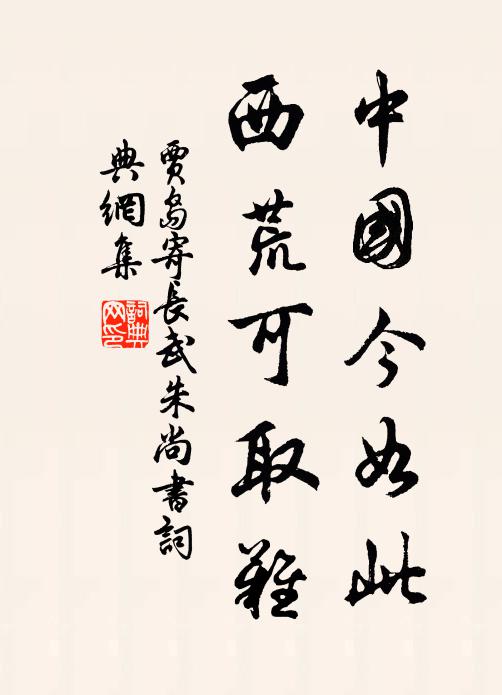 中國今如此
西荒可取難
賈島寄長武朱尚書詞
典網集
詞典
网印